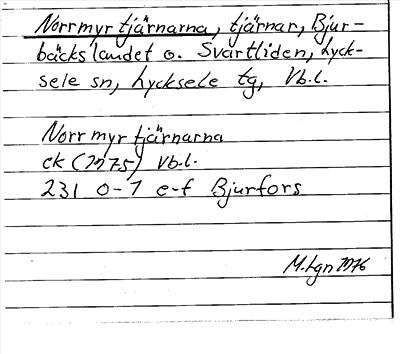 Norrmyrtjärnarna, tjärnar, Bjur-
bäckslandet o. Svartliden, Lyck-
sele sn, Lycksele tg, Vb.l.
Norrmyrtjärnarna
ek (1975) Vb.l.
231 0-1 e-f Bjurfors
M.Lgn 1976